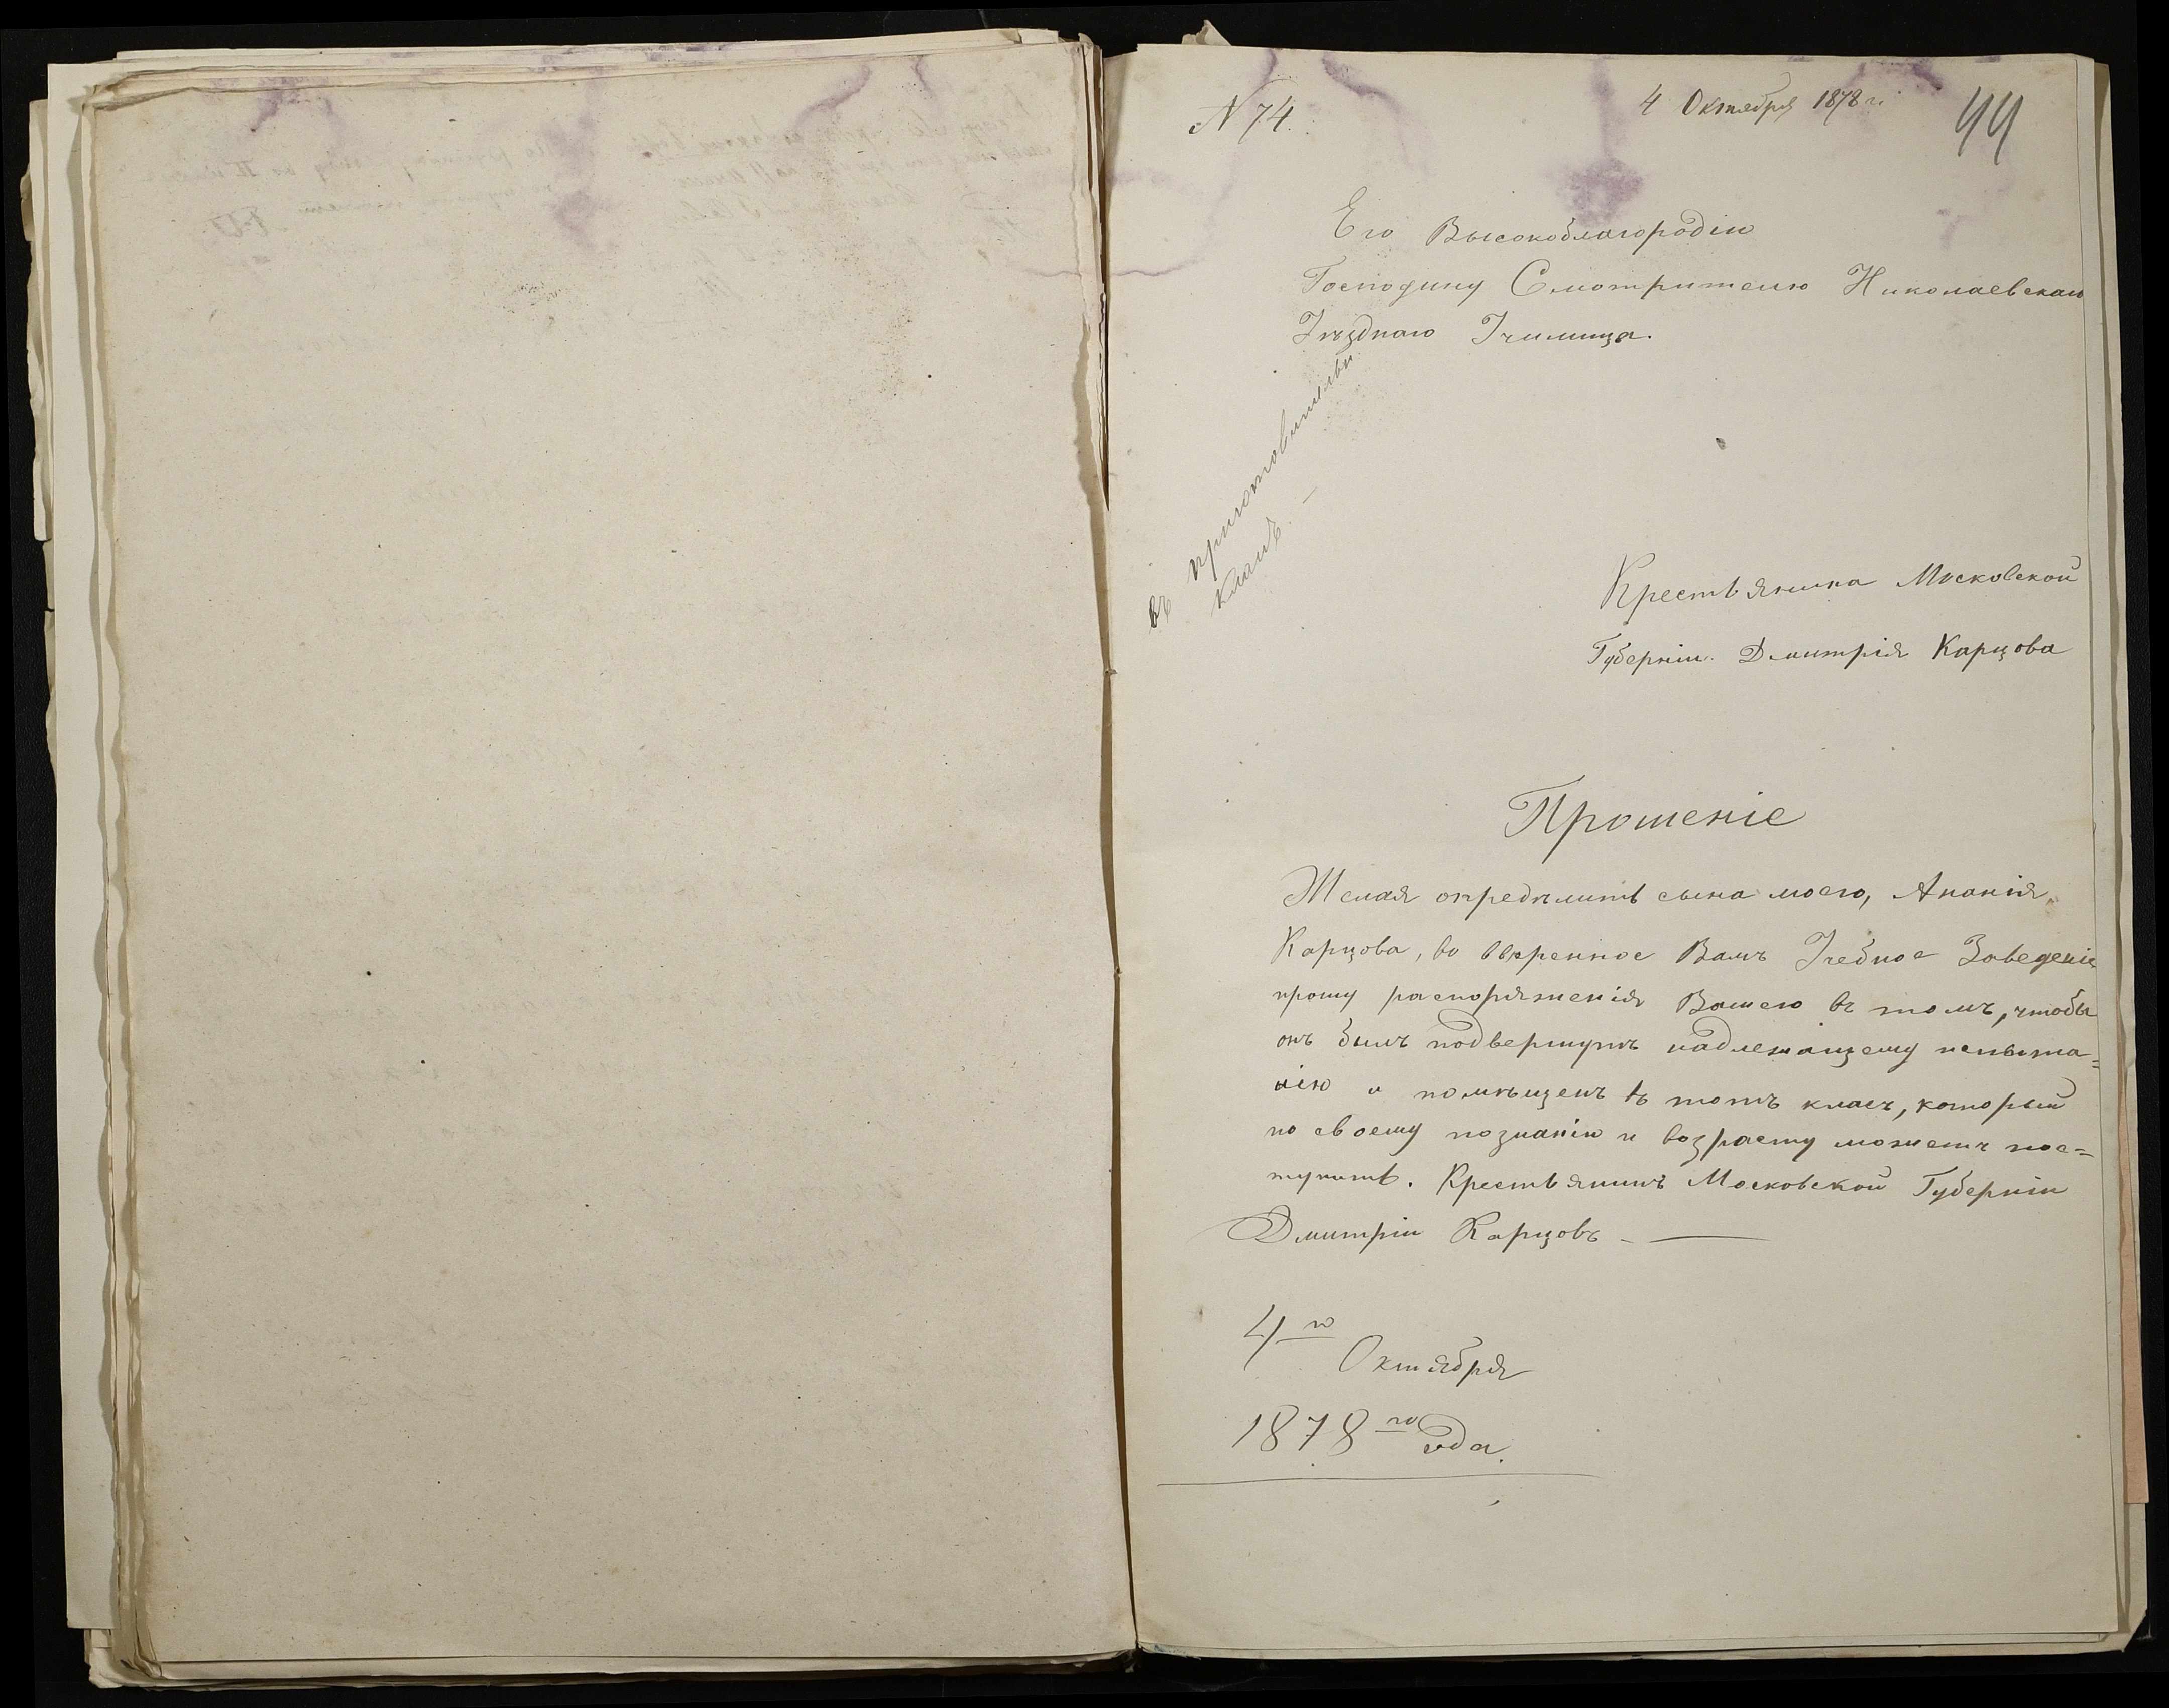 N 74.
4 Октября 1878 г.
44
Его Высокоблагородію
Господину Смотрителю Николаевскаго
Уѣзднаго Училища.
въ приготовительн
класъ. —
Крестьянина Московской
Губерніи. Дмитрія Карцова
Прошеніе
Желая опредѣлить сына моего, Ананія
Карцова, во ввѣренное Вамъ Учебное Заведеніе
прошу распоряженія Вашего въ томъ, чтобы
онъ былъ подвергнутъ надлежащему испыта=
нію и помѣщенъ въ тотъ класъ, который
по своему познанію и возрасту можетъ пос=
тупить. Крестьянинъ Московской Губерніи
Дмитріи Карцовъ —
4го
Октября
1878 года.